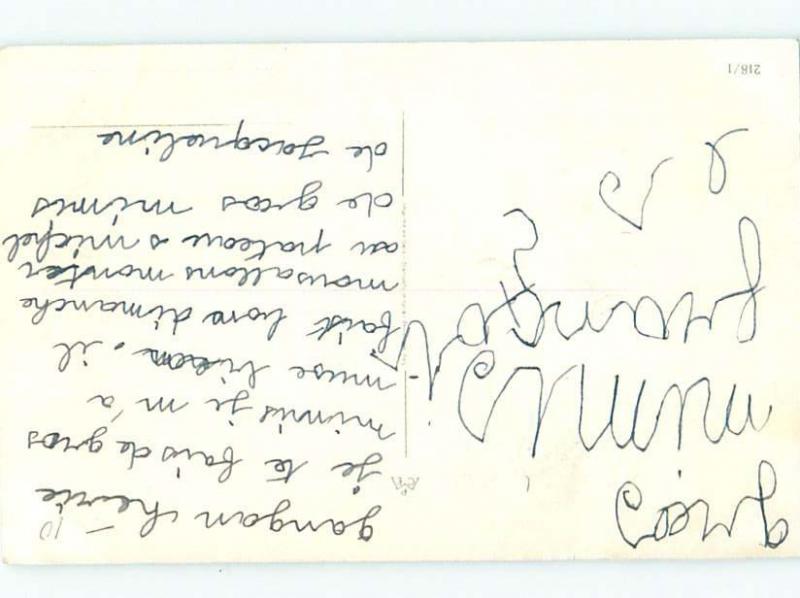 gros
mimi
gangan cherie
je te fais de gros
mimis je m'a
muse bien. il
fait bon dimanche
nousallons monter
au plateau s michel
de gros mimis
de Jacqueline
10 -
218/1